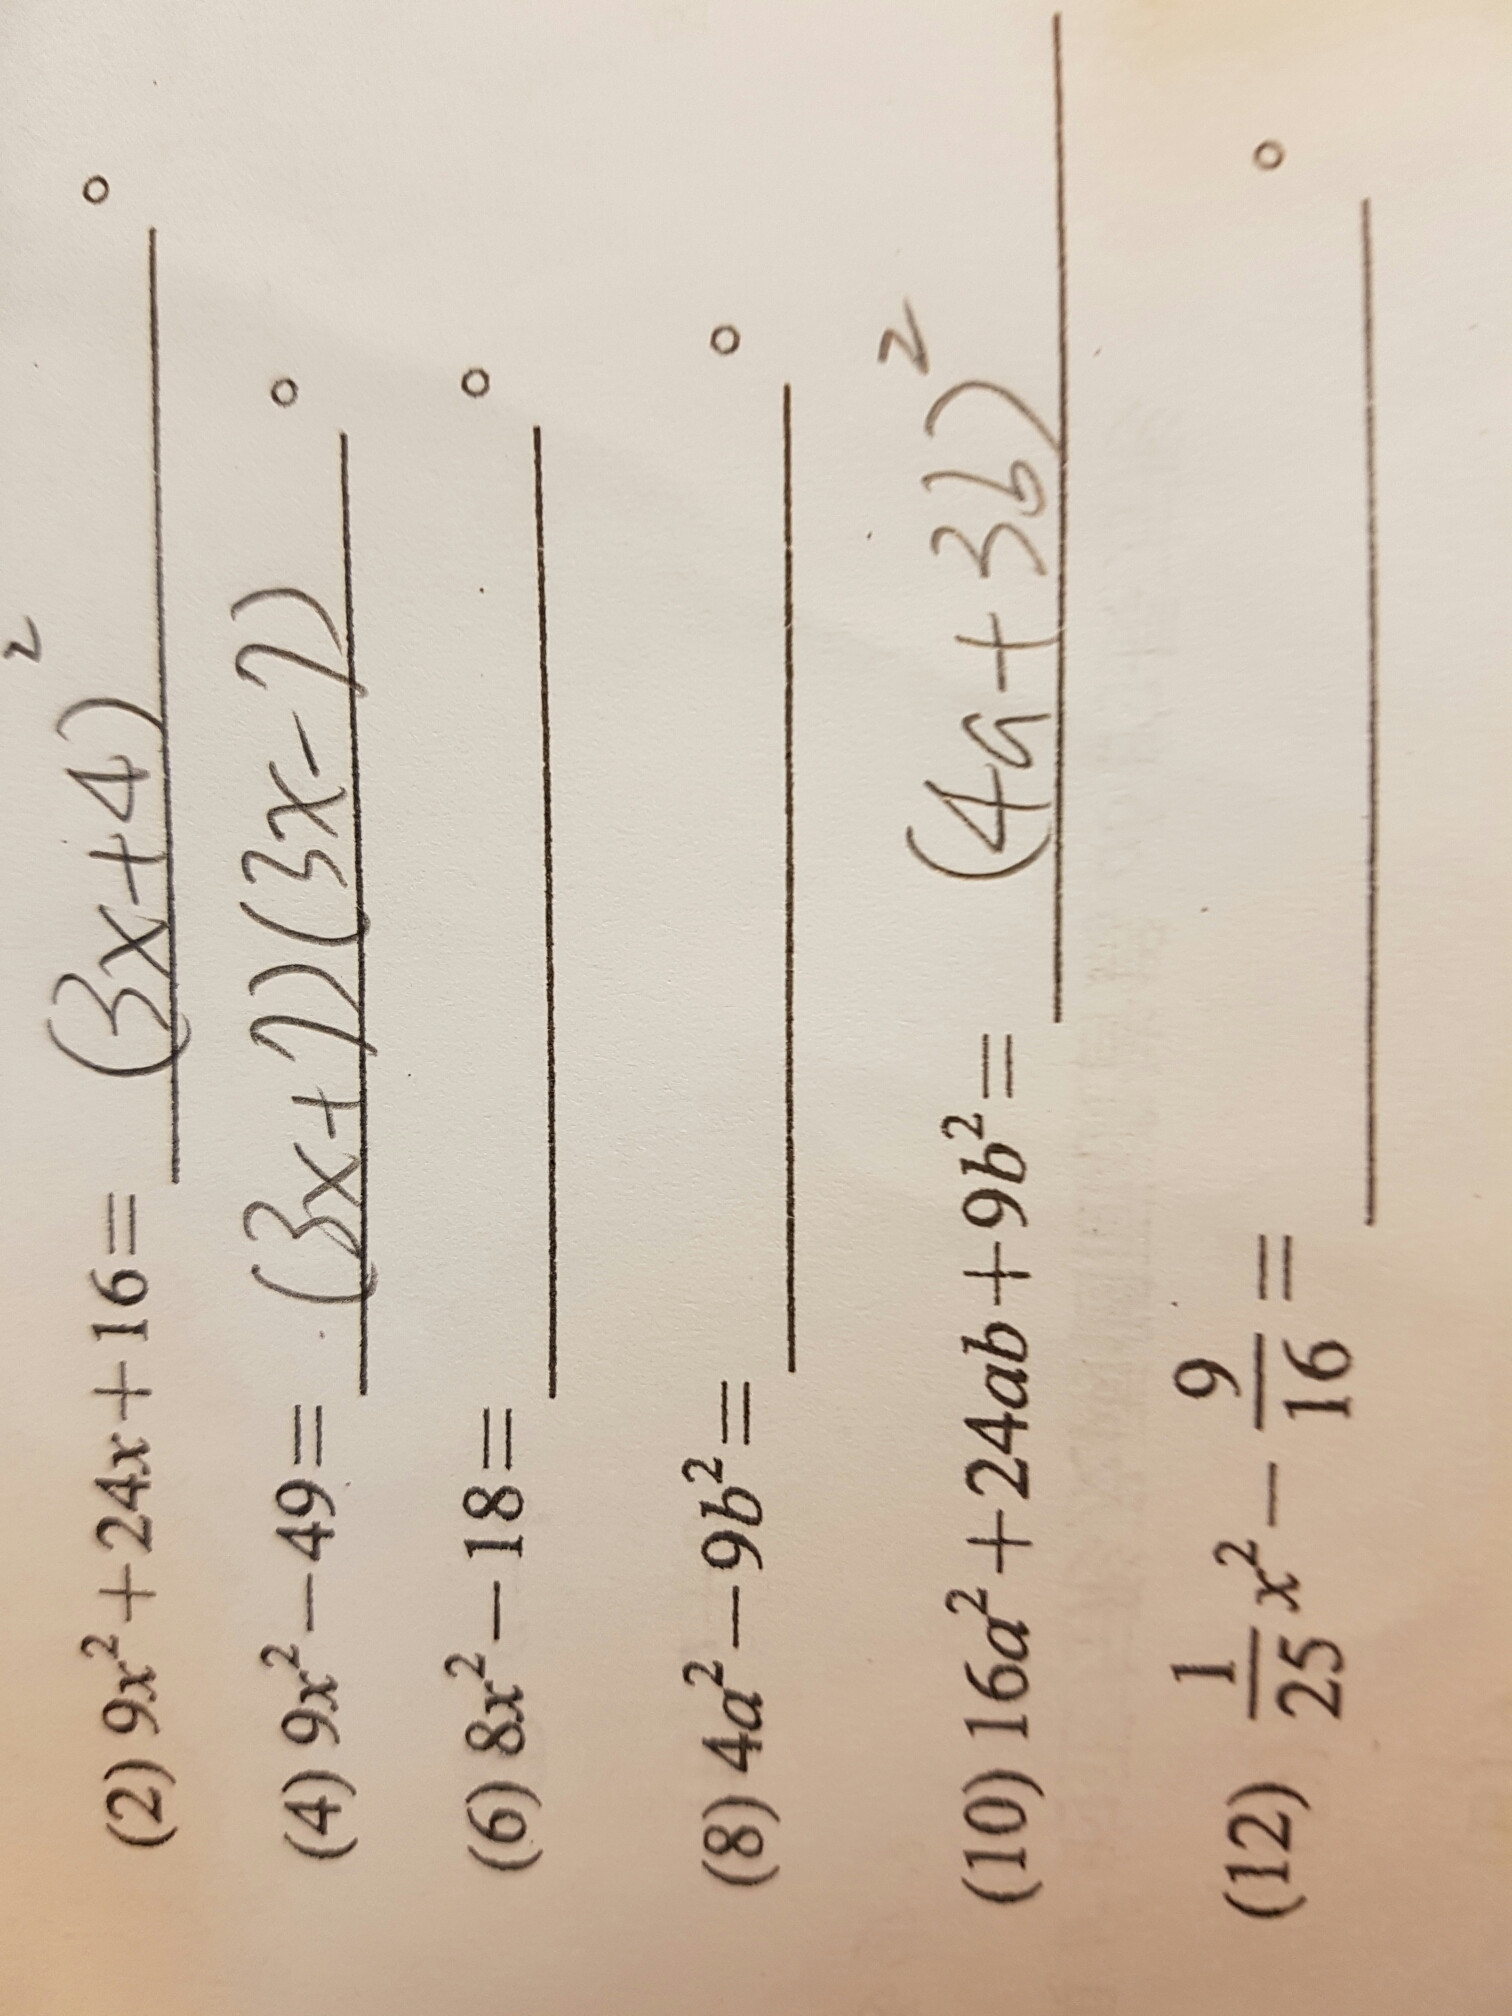 (2) 9x²+24x+16= (3x+4)² 。
(4) 9x²−49= (3x+7)(3x-7) 。
(6) 8x²−18= 。
(8) 4a²−9b²= 。
(10) 16a²+24ab+9b²= (4a+3b)²
(12) 1/25 x² − 9/16 = 。